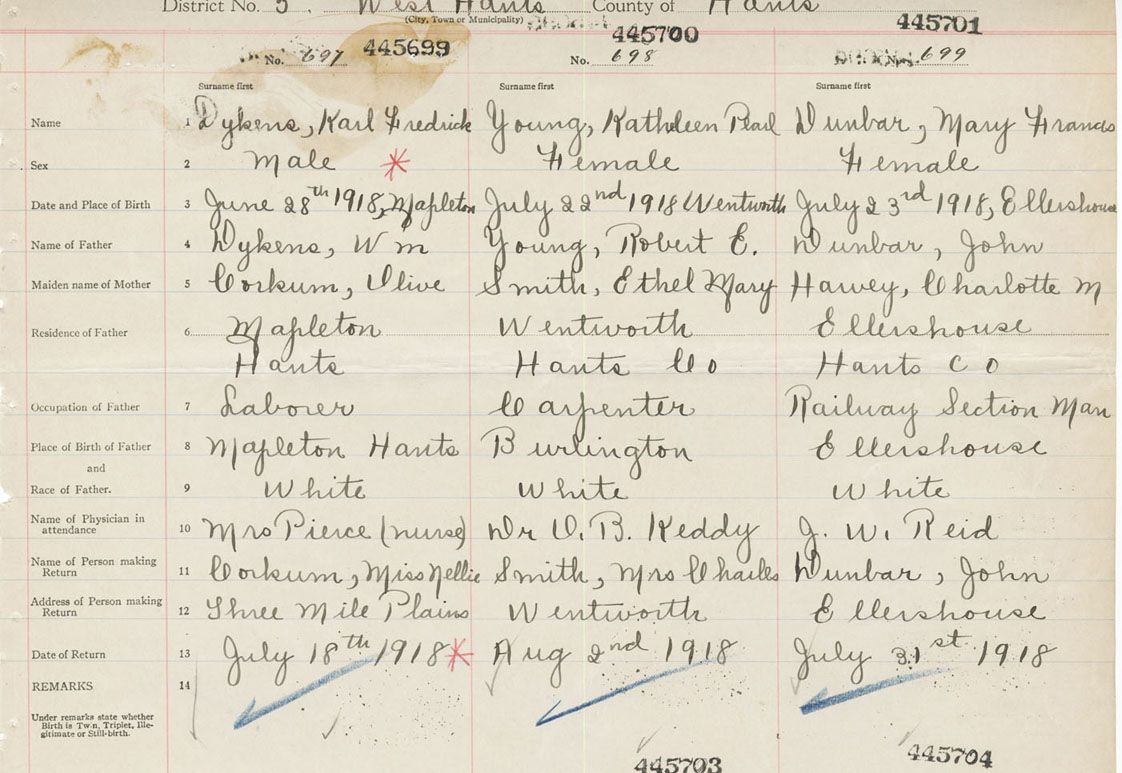 District No. 5. West Hants County of Hants
(City, Town or Municipality)
445699 445700 445701
No. 697 No. 698 No. 699
Surname first Surname first Surname first
Name 1 Dykens, Karl Fredrick Young, Kathleen Pearl Dunbar, Mary Francis
Sex 2 Male * Female Female
Date and Place of Birth 3 June 28th 1918, Mapleton July 22nd 1918 Wentworth July 23rd 1918, Ellershouse
Name of Father 4 Dykens, Wm Young, Robert E. Dunbar, John
Maiden name of Mother 5 Corkum, Olive Smith, Ethel Mary Harvey, Charlotte M
Residence of Father 6 Mapleton Wentworth Ellershouse
Hants Hants Co Hants CO
Occupation of Father 7 Laborer Carpenter Railway Section Man
Place of Birth of Father 8 Mapleton Hants Burlington Ellershouse
and
Race of Father. 9 White White White
Name of Physician in attendance 10 Mrs Pierce (nurse) Dr O. B. Keddy J. W. Reid
Name of Person making Return 11 Corkum, Miss Nellie Smith, Mrs Charles Dunbar, John
Address of Person making Return 12 Three Mile Plains Wentworth Ellershouse
Date of Return 13 July 18th 1918 * Aug 2nd 1918 July 31st 1918
REMARKS 14
Under remarks state whether
Birth is Twin, Triplet, Ille-
gitimate or Still-birth.
445703 445704